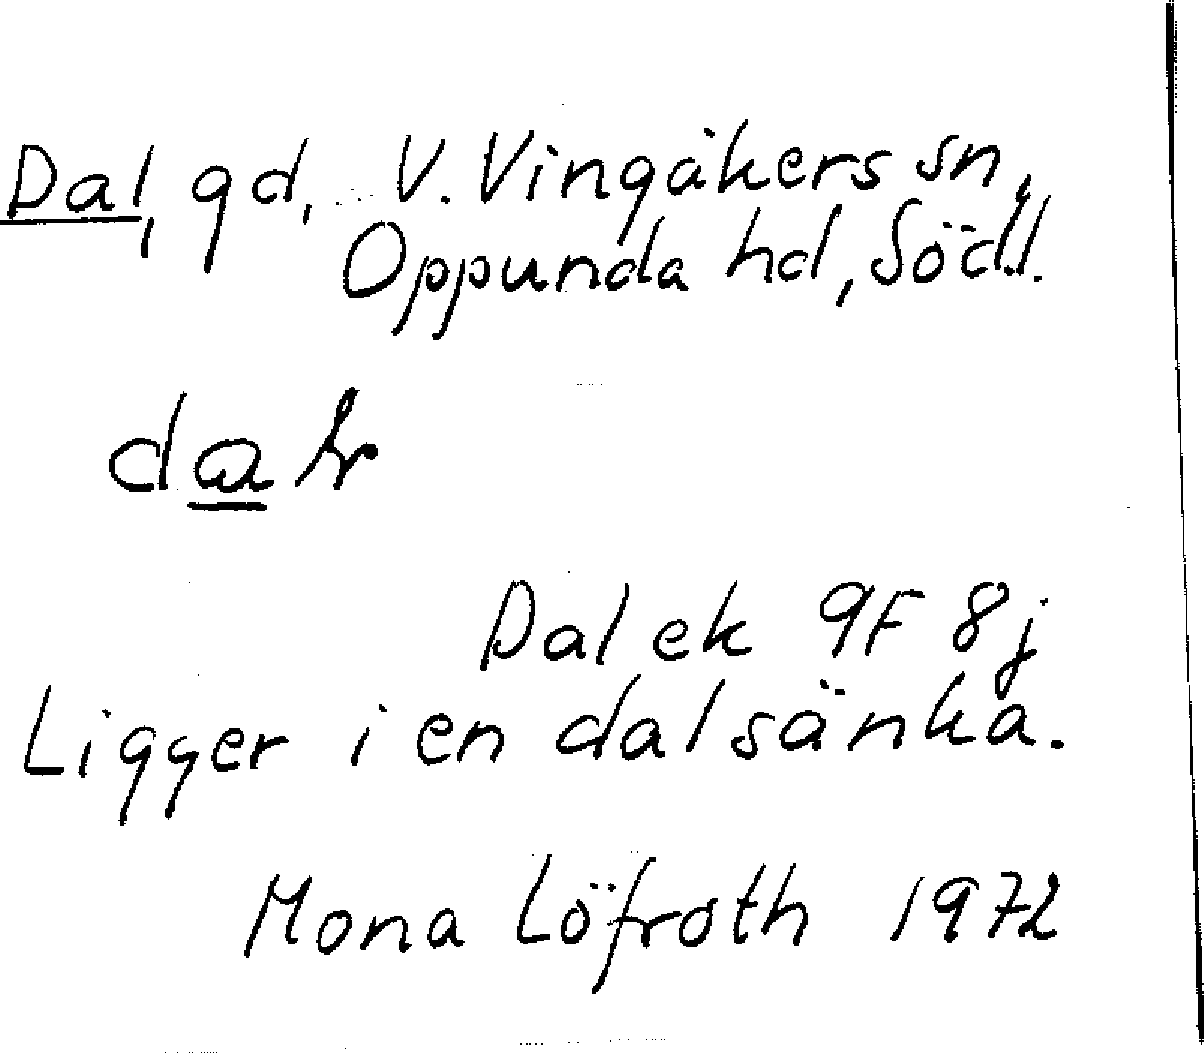 Dal, gd, V. Vingåkers sn,
Oppunda hd, Södl.
Dal ek 9F 8j
Ligger i en dalsänka.
Mona Löfroth 1972